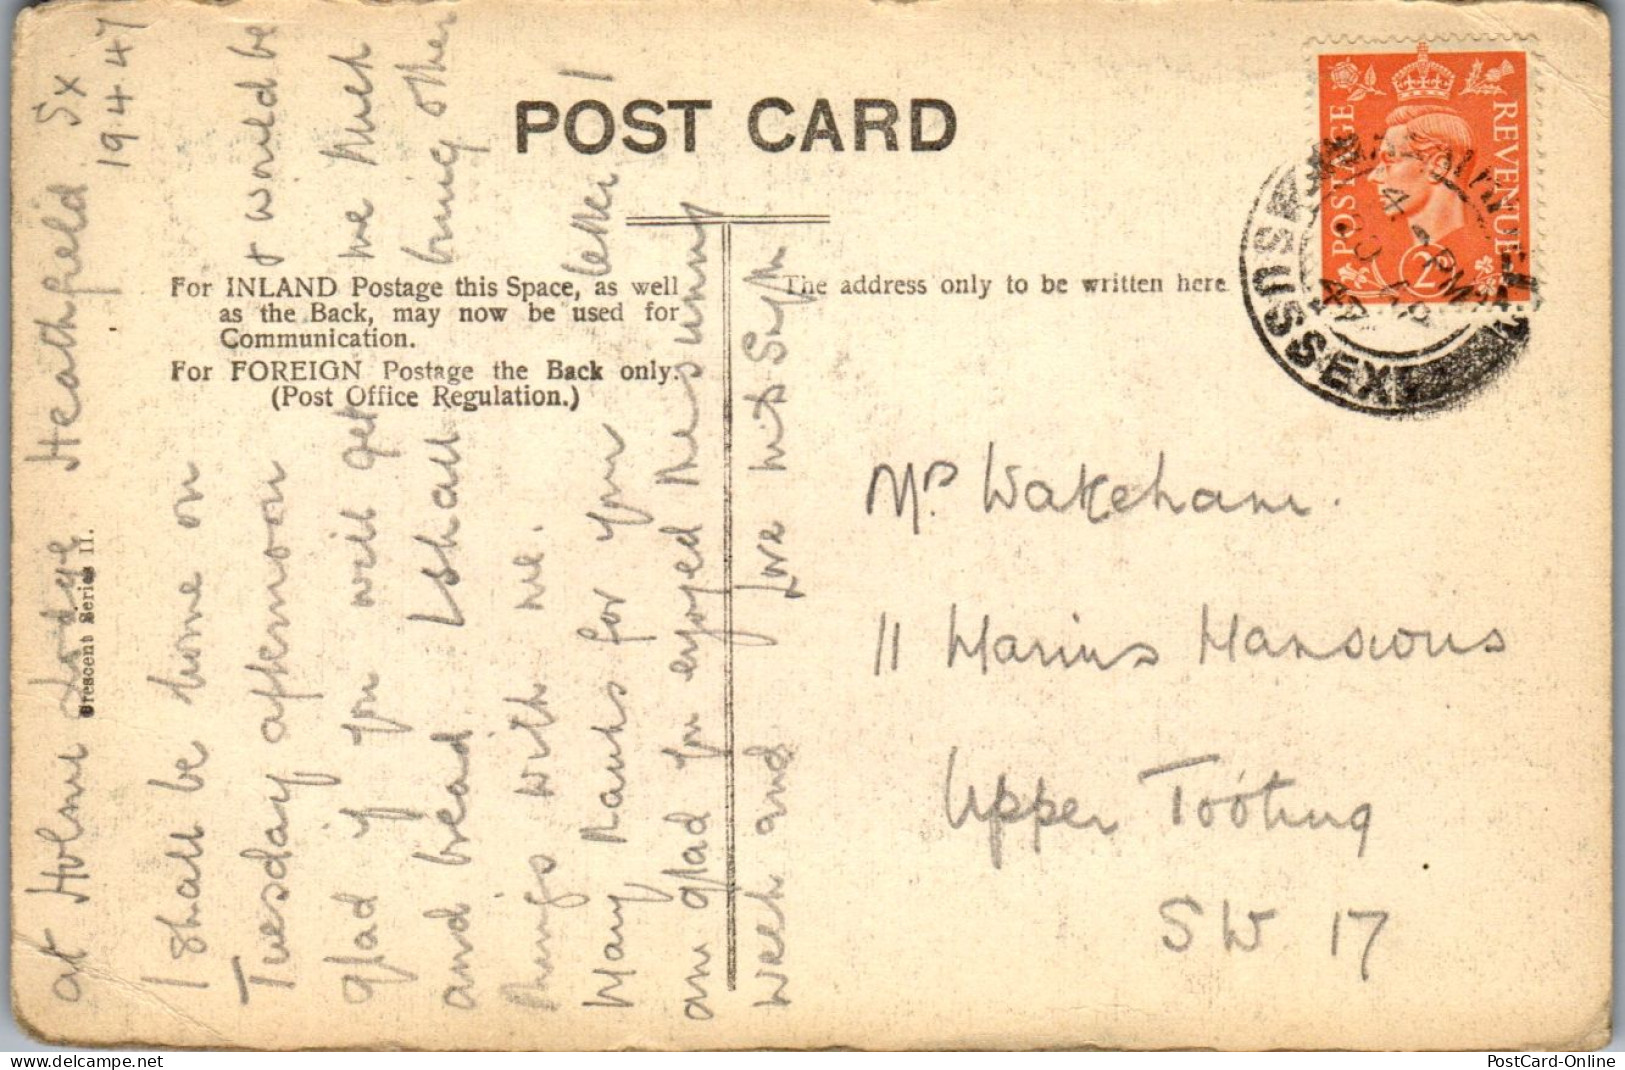 POST CARD
For INLAND Postage this Space, as well
as the Back, may now be used for
Communication.
For FOREIGN Postage the Back only.
(Post Office Regulation.)
The address only to be written here
Crescent Series II.
POSTAGE
REVENUE
2D
4 - PM
20 AP
47
SUSSEX
at Holme Lodge Heathfield Sx
19 4 47
I shall be home on
Tuesday afternoon & would be
glad if you will get me milk
and bread. I shall bring other
things with me.
Many thanks for your letter!
am glad you enjoyed the sunny
week end
Love
Mrs Wakeham.
11 Marius Mansions
Upper Tooting
SW 17
PostCard-Online
www.delcampe.net